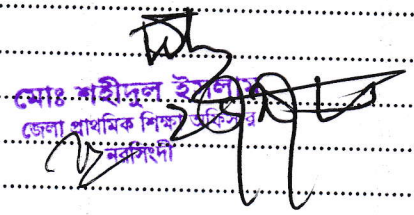 মোঃ শহীদুল ইসলাম
জেলা প্রাথমিক শিক্ষা অফিসার
নরসিংদী